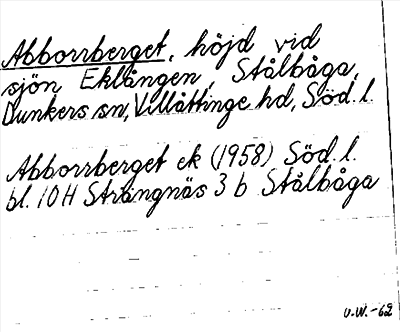 Abborrberget, höjd vid
sjön Eklången, Stålbåga,
Dunkers sn, Villåttinge hd, Söd. l.
Abborrberget ek (1958) Söd. l.
bl. 10H Strängnäs 3 b Stålbåga
U.W.-62